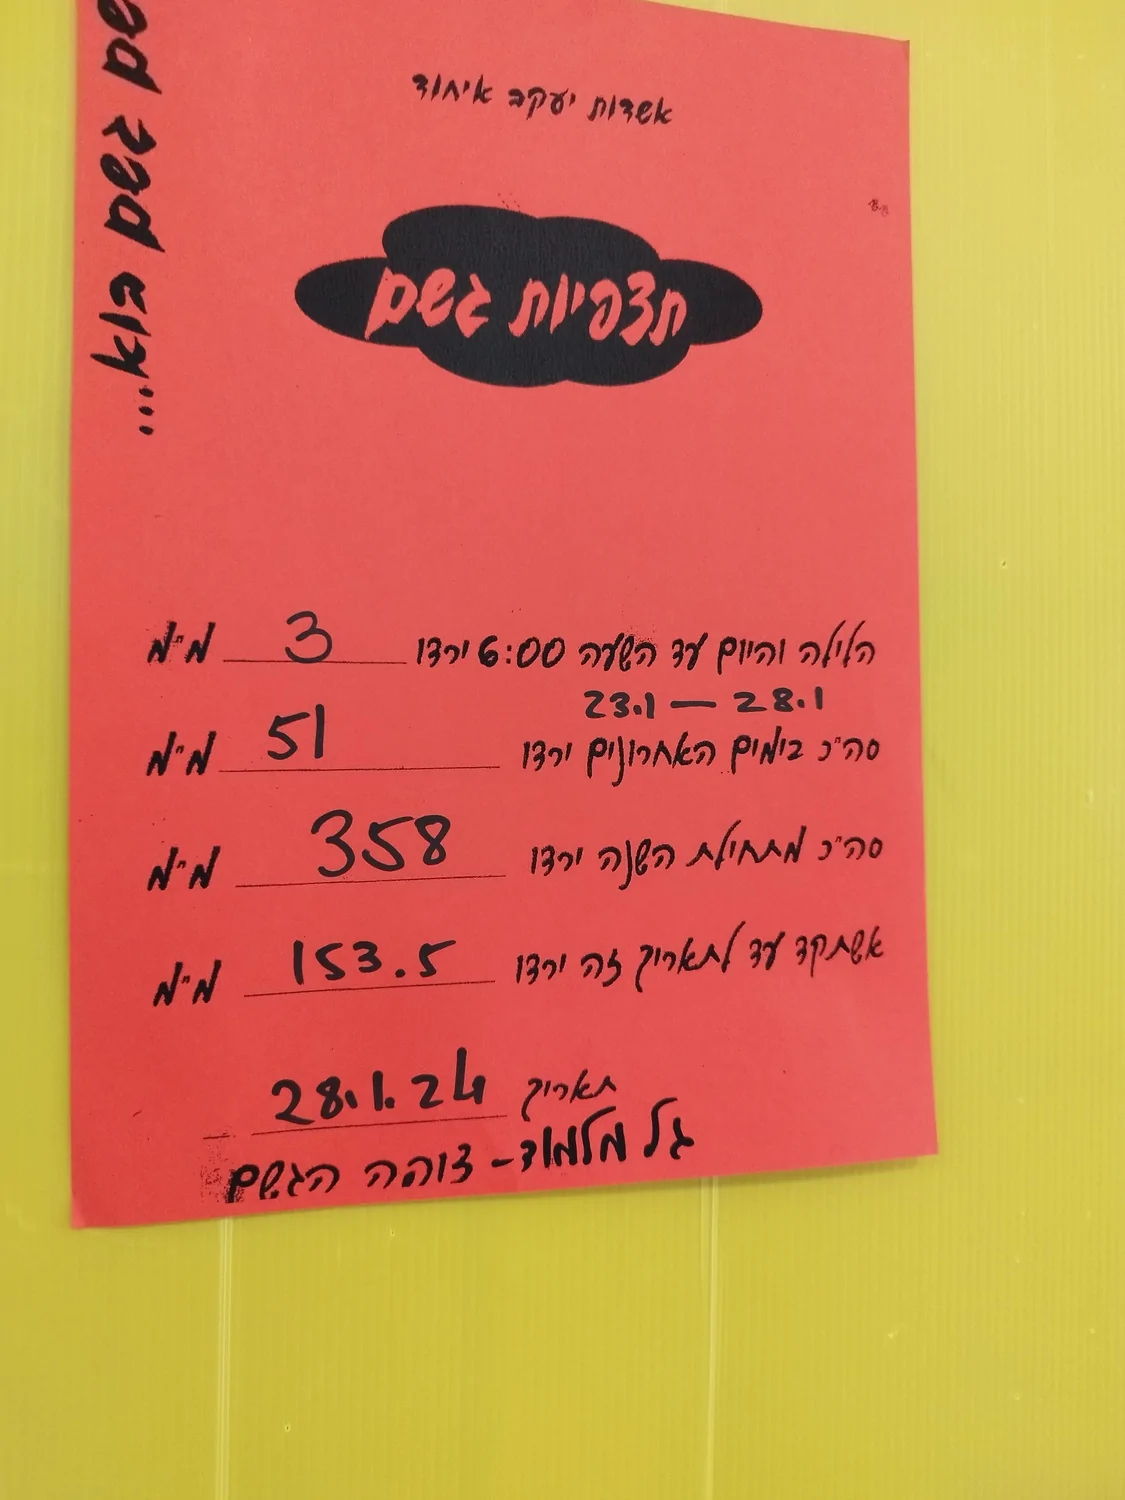 אשדות יעקב איחוד
תצפיות גשם
גשם בוא...
הלילה והיום עד השעה 6:00 ירדו 3 מ"מ
23.1 — 28.1
סה"כ בימים האחרונים ירדו 51 מ"מ
סה"כ מתחילת השנה ירדו 358 מ"מ
אשתקד עד לתאריך זה ירדו 153.5 מ"מ
תאריך 28.1.24
גל מלמוד - צופה הגשם